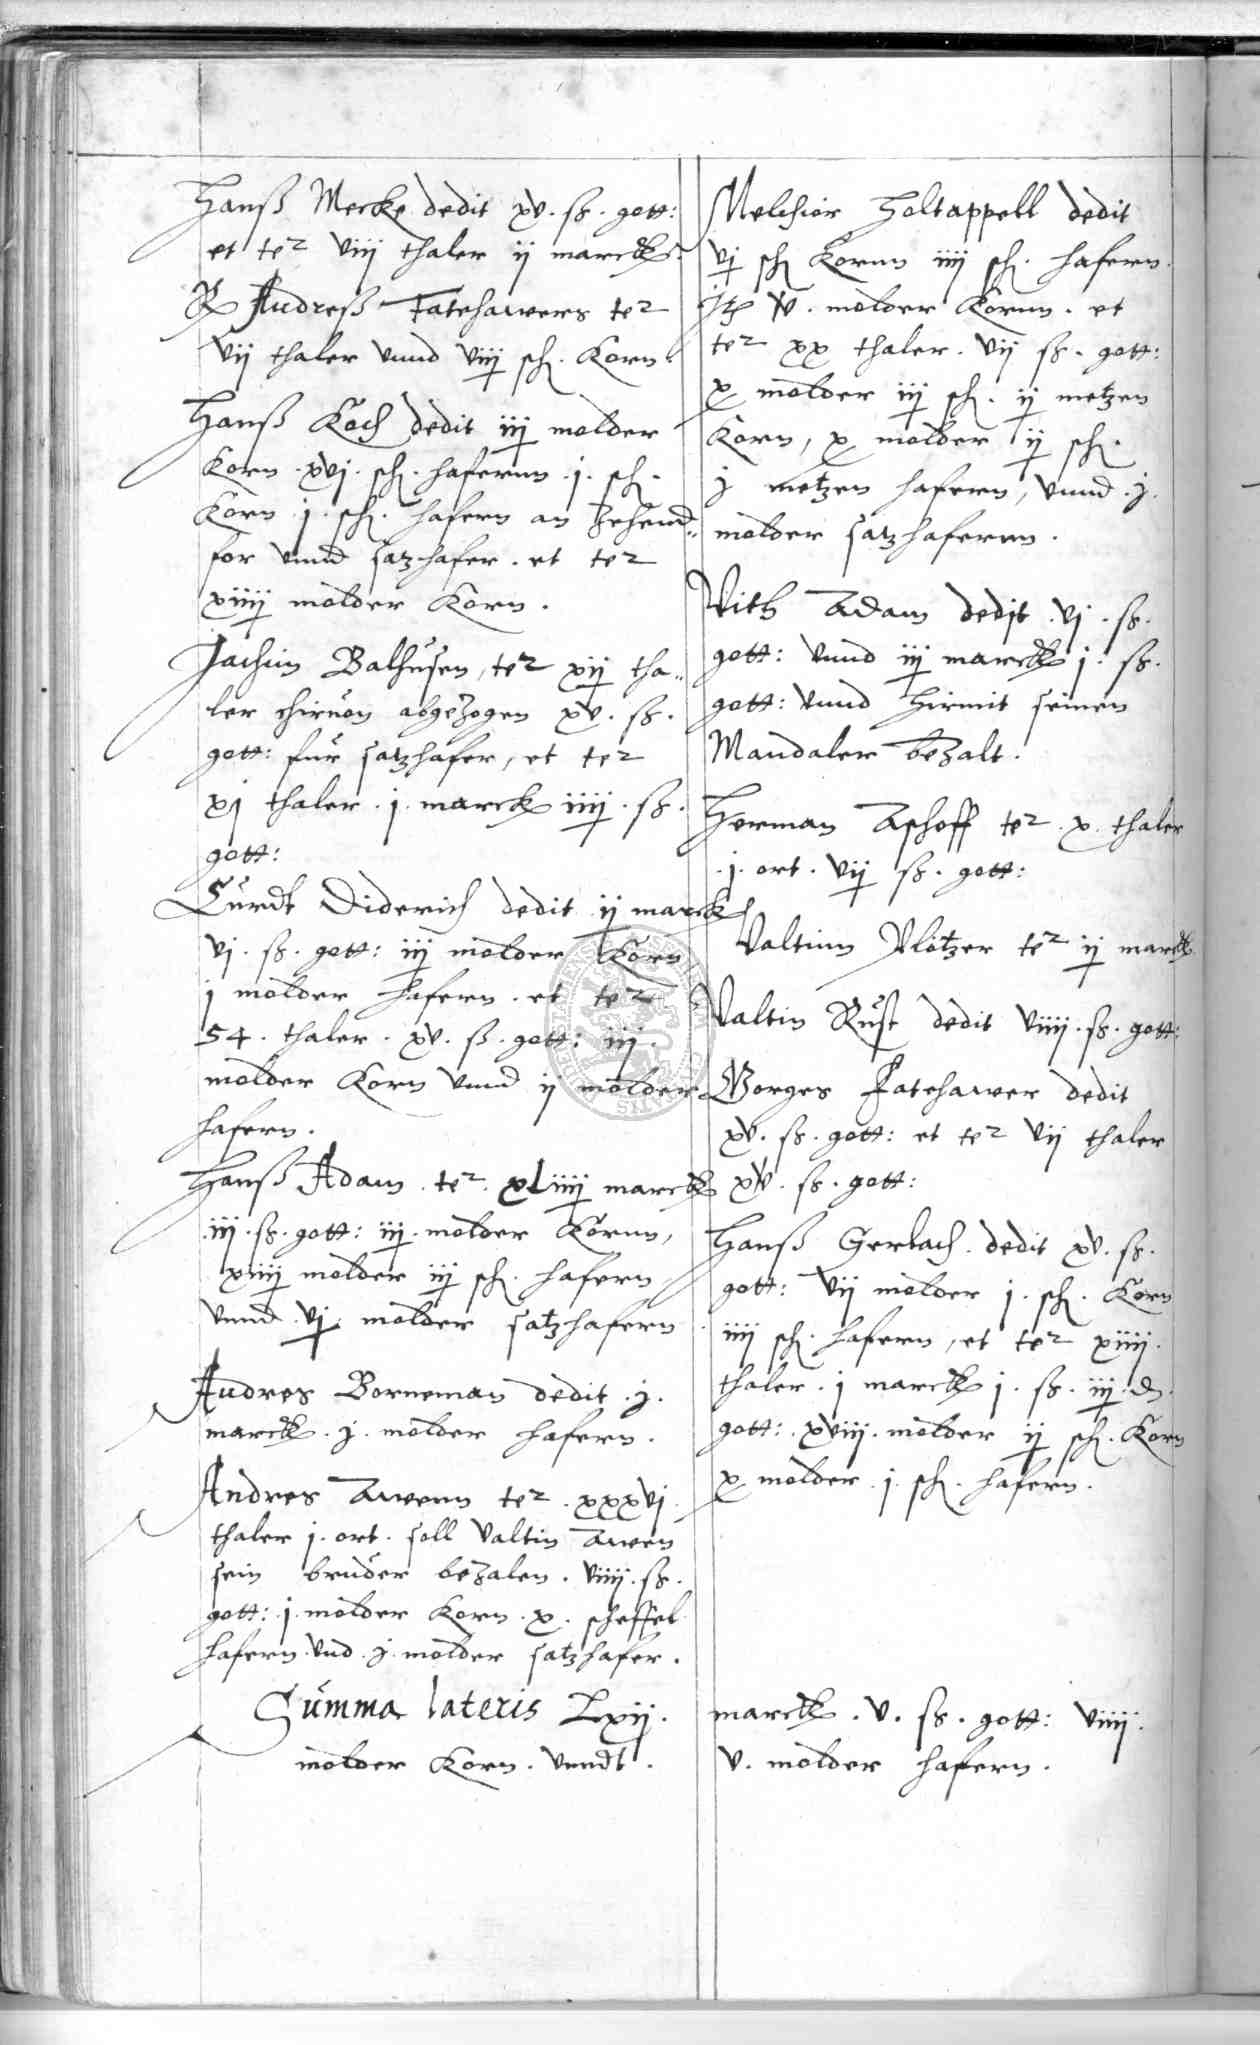 Hanß Mecke dedit xv. ß. gott:
et te2 viij thaler ij marck
R Andreß Fatehawers te2
vij thaler vnnd viiij sch. Korn
Hanß Koch dedit iij molder
Korn .xvj. sch. hafernn .j. sch.
Korn .j. sch. hafern an Zehend„
for vnnd satzhafer . et te2
xiiij molder Korn .
Jachim Balhusen, te2 xij tha„
ler hiruon abgezogen xv. ß.
gott: fur satzhafer, et te2
xj thaler .j. marck iiij . ß.
gott:
Curdt Diderich dedit ij marck
vj. ß. gott: iij molder Korn
j molder hafern . et te2
54 . thaler . xv. ß. gott: iij.
molder Korn vnnd ij molder
hafern .
Hanß Adam . te2 . xLiiij marck
.iij. ß. gott: iij. molder Kornn,
xiiij molder iij sch. hafern,
vnnd .vj. molder satzhafern
Andres Borneman dedit .j.
marck . j. molder hafern .
Andres Awenn te2 . xxxvj.
thaler j. ort. soll Valtin Awen
sein bruder bezalen . viiij. ß.
gott: .j. molder Korn . x. scheffel
hafern . vnd .j. molder satzhafer .
Melchior Holtappell dedit
vj sch Kornn iiij sch. hafern.
Jt v . molder Kornn . et
te2 xx thaler . vij ß. gott:
x molder iij sch. ij metzen
Korn, x molder ij sch.
j metzen hafern, vnnd .j.
molder satzhafernn .
Vith Adam dedit .vj. ß.
gott: vnnd iij marck j. ß.
gott: vnnd hirmit seinen
Mandaler bezalt .
Herman Ashoff te2 . x. thaler
.j. ort . vij ß. gott:
Valtinn Vlötzer te2 ij marck
Valtin Rust dedit viiij. ß. gott:
Borges Fatehawer dedit
xv. ß. gott: et te2 vij thaler
xv . ß. gott:
Hanß Gerlach . dedit xv. ß.
gott: vij molder j. sch. Korn
iiij sch. hafern, et te2 xiiij.
thaler . j marck j. ß. iij d.
gott: . xviij. molder ij sch. Korn
x molder .j. sch. hafern .
Summa lateris Lxij . marck . v. ß. gott: viiij.
molder Korn . vnndt . v. molder hafern .